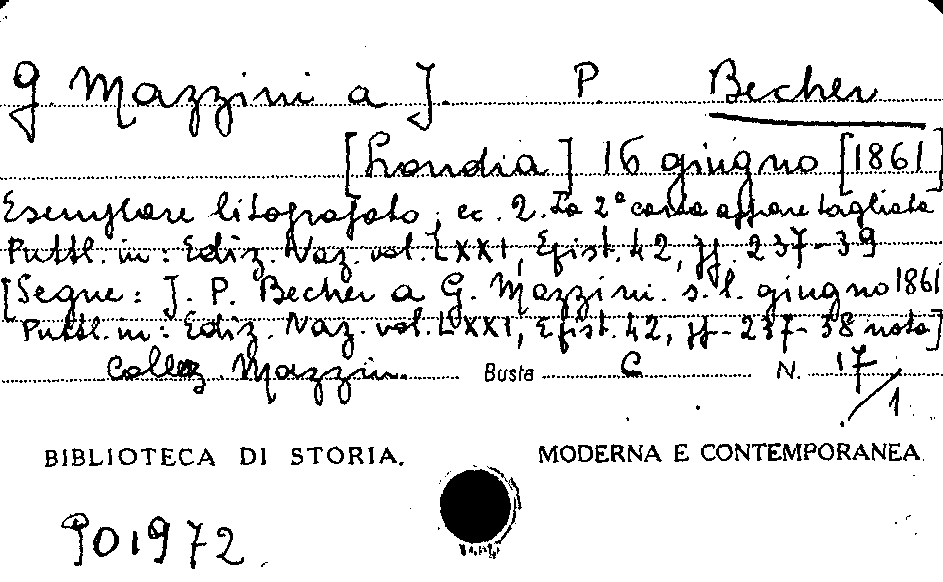 G. Mazzini a J. P. Becher
[Londra] 16 giugno [1861]
Esemplare litografato; cc. 2. La 2ª carta appare tagliata
Pubbl. in: Ediz. Naz. vol. LXXI, Epist. 42, pp. 237-39
[Segue: J. P. Becher a G. Mazzini. s. l. giugno 1861
Pubbl. in: Ediz. Naz. vol. LXXI, Epist. 42, pp. 237-38 nota]
Collez. Mazzini. Busta C N. 17/1
BIBLIOTECA DI STORIA. MODERNA E CONTEMPORANEA
901972